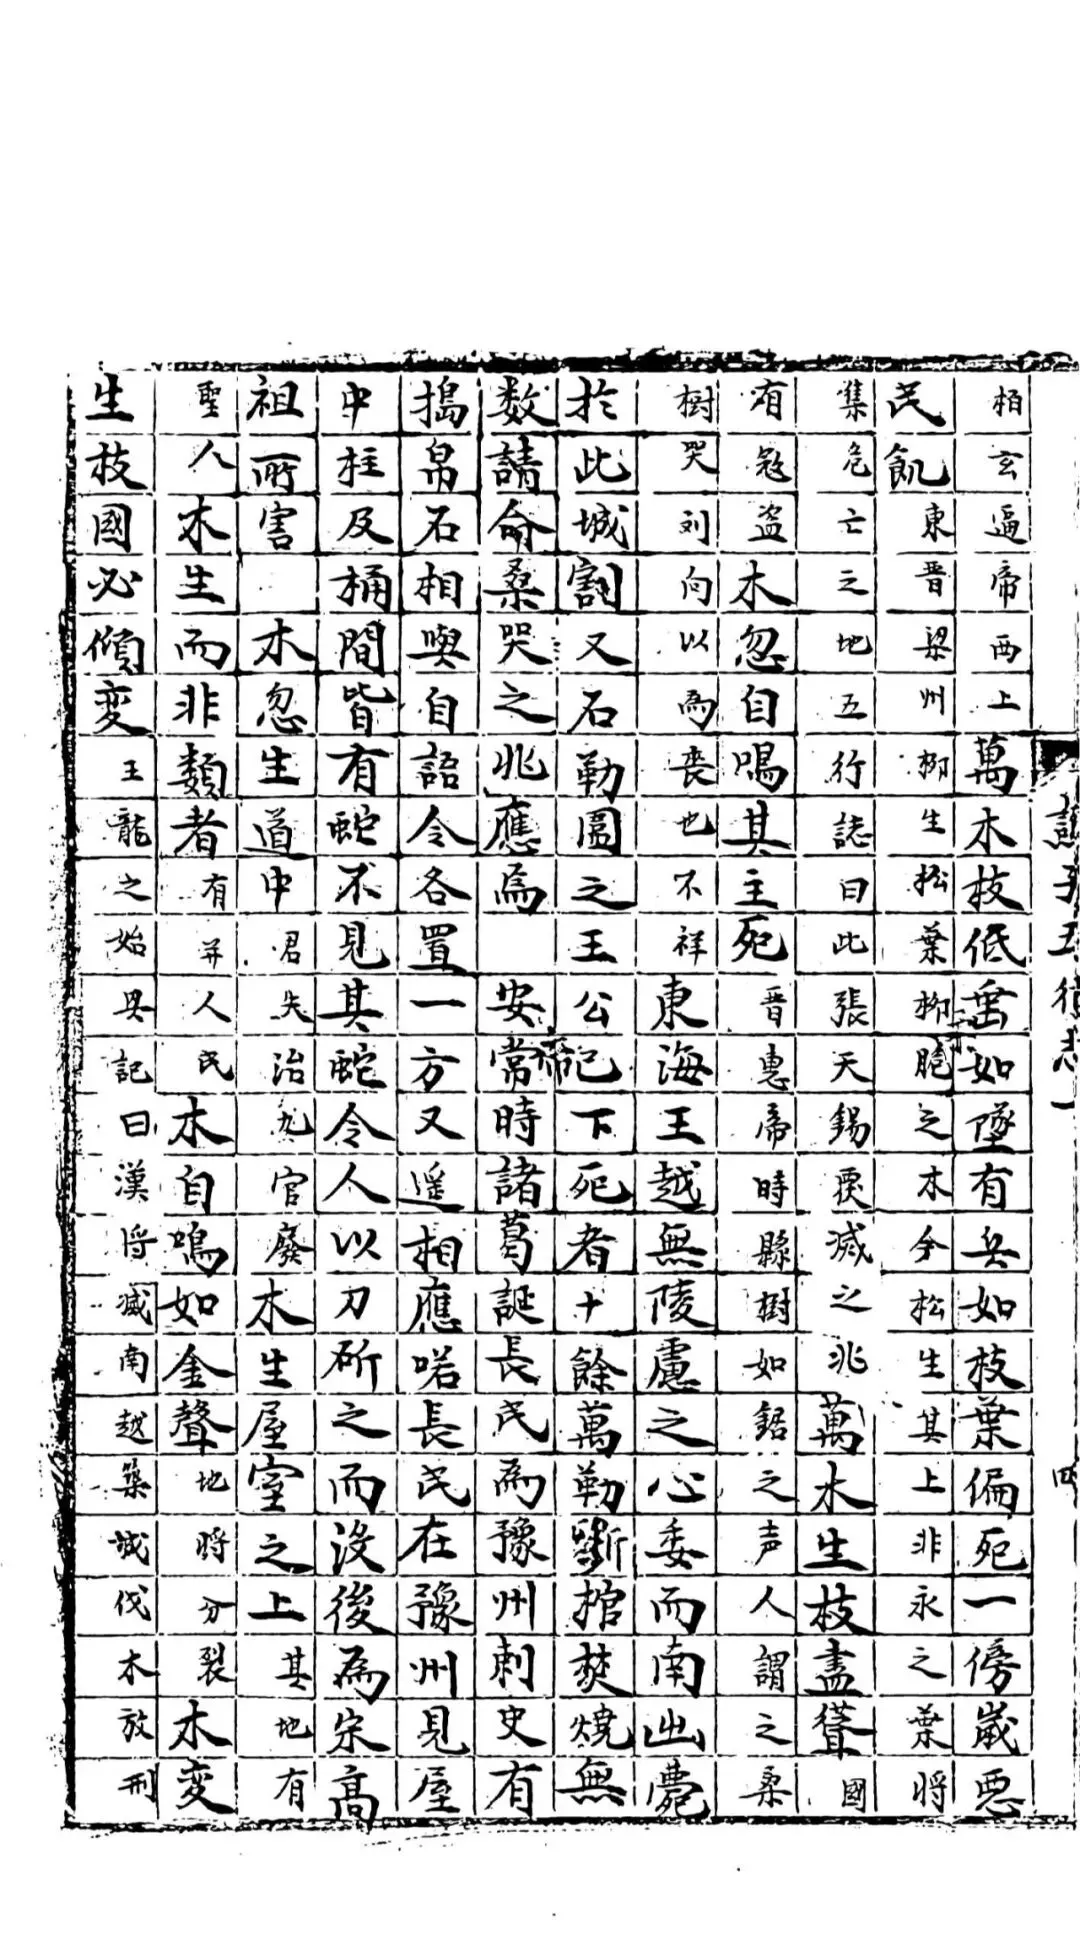 栢玄逼帝西上萬木枝低垂如墜有兵如枝葉偏死一傍歲惡
民飢東晋梁州柳生松葉柳脃之木今松生其上非永之葉將
集危亡之地五行誌曰此張天錫㓕之兆萬木生枝盡聳國
有冦盗木忽自鳴其主死晋惠帝時縣樹如鋸之声人謂之桒
樹哭刘向以為喪也不祥東海王越無陵慮之心委而南出薨
扵此城割又石勒圍之王公已下死者十餘萬勒斵棺焚燒無
数請命桑哭之兆應焉安帝常時諸葛誕長民為豫州刺史有
搗帛石相與自語令各置一方又遥相應喏長民在豫州見屋
中柱及桶間皆有蛇不見其蛇令人以刀斫之而没後為宋高
祖所害木忽生道中君失治九官廢木生屋室之上其地有
聖人木生而非類者有并人民木自鳴如金聲地將分裂木変
生枝國必傾変王龍之始興記曰漢將㓕南越築城伐木放刑
五行志一
四